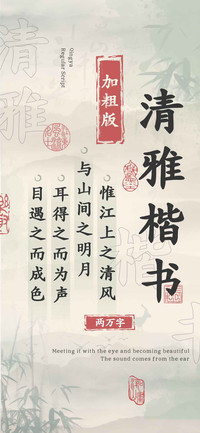 Qingya
Regular Script
加粗版
清雅楷书
惟江上之清风
与山间之明月
耳得之而为声
目遇之而成色
两万字
Meeting it with the eye and becoming beautiful
The sound comes from the ear